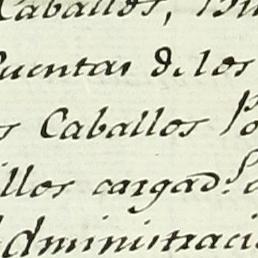 Caballos,
Cuentas de los
s Caballos Po
illos cargad.s
Administraci